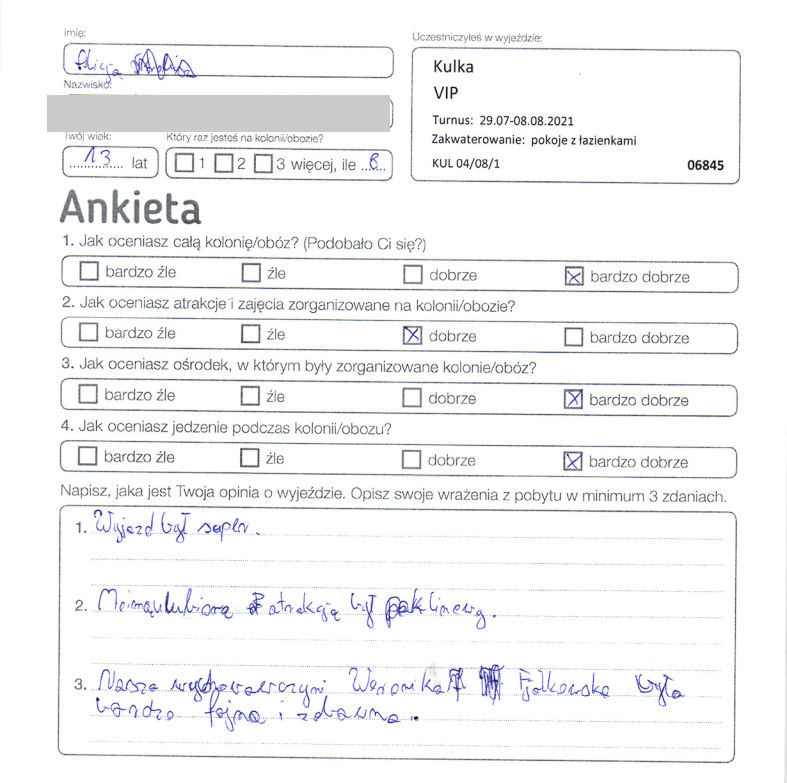 Imię:
Alicja
Nazwisko:
Twój wiek: Który raz jesteś na kolonii/obozie?
13 lat 1 2 3 więcej, ile 8
Uczestniczyłeś w wyjeździe:
Kulka
VIP
Turnus: 29.07-08.08.2021
Zakwaterowanie: pokoje z łazienkami
KUL 04/08/1 06845
Ankieta
1. Jak oceniasz całą kolonię/obóz? (Podobało Ci się?)
bardzo źle źle dobrze bardzo dobrze
2. Jak oceniasz atrakcje i zajęcia zorganizowane na kolonii/obozie?
bardzo źle źle dobrze bardzo dobrze
3. Jak oceniasz ośrodek, w którym były zorganizowane kolonie/obóz?
bardzo źle źle dobrze bardzo dobrze
4. Jak oceniasz jedzenie podczas kolonii/obozu?
bardzo źle źle dobrze bardzo dobrze
Napisz, jaka jest Twoja opinia o wyjeździe. Opisz swoje wrażenia z pobytu w minimum 3 zdaniach.
1. Wyjazd był super.
2. atrakcją był
3. Nasza wychowawczyni Weronika Fjolkowska była
bardzo fajna i zabawna.